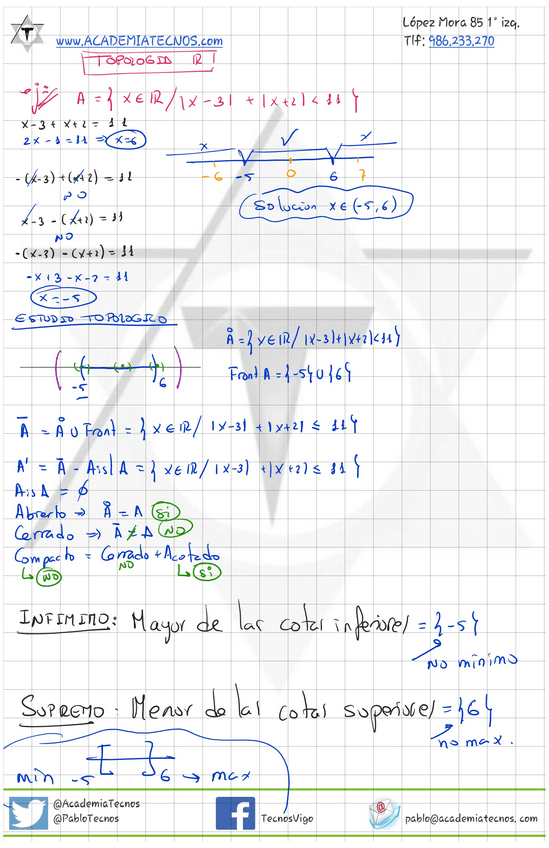 López Mora 85 1º izq.
www.ACADEMIATECNOS.com
Tlf: 986.233.270
TOPOLOGIA R
Ej: A = { x∈ℝ / |x-3| + |x+2| < 11 }
x-3 + x+2 = 11
2x - 1 = 11 ⇒ x=6
x ✓ x
-6 -5 0 6 7
-(x-3) + (x+2) = 11
NO
Solucion x∈(-5,6)
x-3 - (x+2) = 11
NO
-(x-3) - (x+2) = 11
-x+3 - x - 2 = 11
x = -5
ESTUDIO TOPOLOGICO
Å = { x∈ℝ / |x-3|+|x+2|<11 }
-5 6
Front A = {-5} ∪ {6}
Ā = Å ∪ Front = { x∈ℝ / |x-3| + |x+2| ≤ 11 }
A' = Ā - Ais A = { x∈ℝ / |x-3| + |x+2| ≤ 11 }
Ais A = ∅
Abierto ⇒ Å = A Si
Cerrado ⇒ Ā ≠ A NO
Compacto = Cerrado + Acotado
NO NO Si
INFIMITO: Mayor de las cotas inferiores = {-5}
No minimo
SUPREMO: Menor de las cotas superiores = {6}
no max.
min -5 6 → max
@AcademiaTecnos
@PabloTecnos
TecnosVigo
pablo@academiatecnos.com